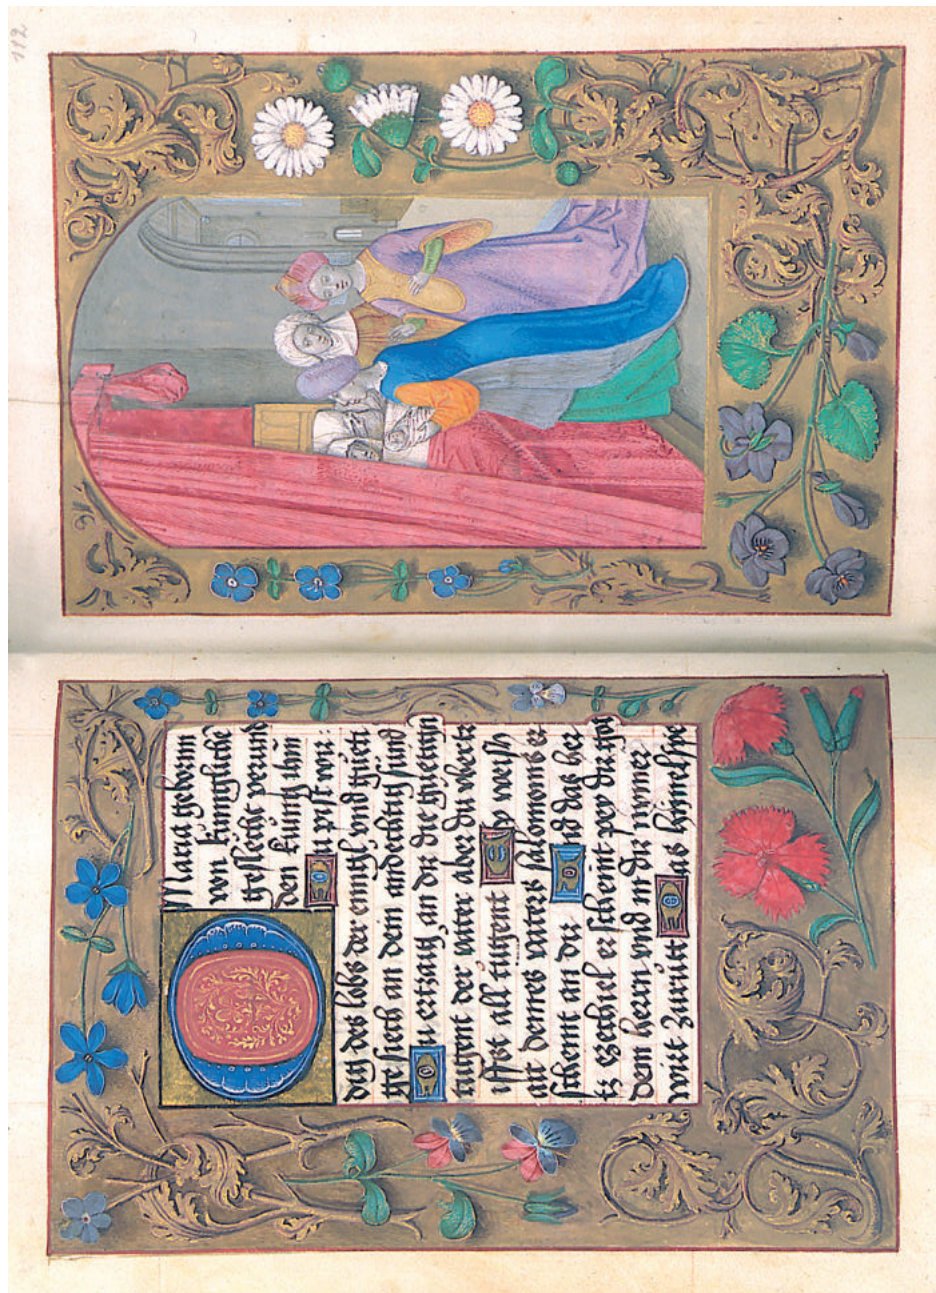 112
Maria geborn
von kunigliche
geslecht
den kunig
Du pist wir:
dig des lobs der ewig vnd guett
ge siech an dem andechtig sünd
Du erzaig an dir die
tugent der vater aber du vbertr
ifft all tugent weish
ait deines vaters salomonis er
scheint an dir Und das her
tz ezechiel er scheint pey dir vor
dem herrn vnd in dir nymer
wirt zurütt Das himelspe